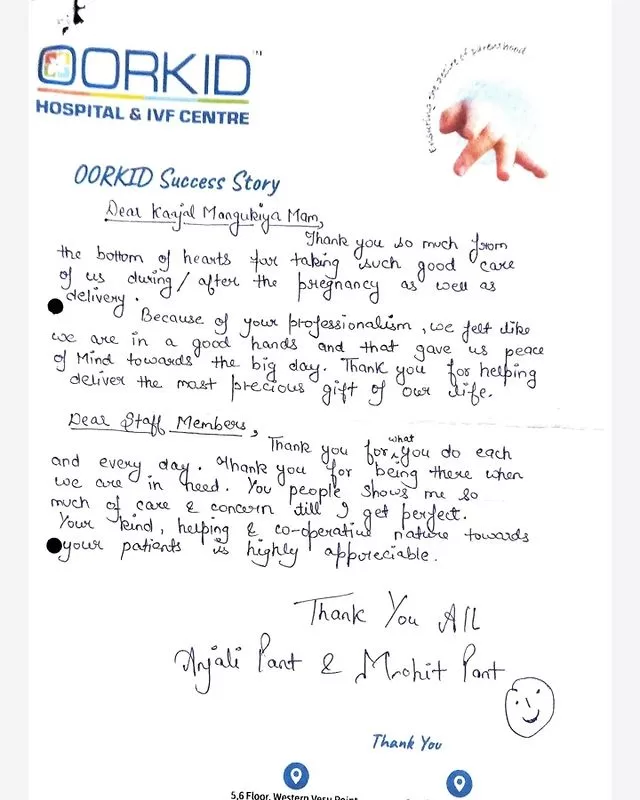 OORKID™
HOSPITAL & IVF CENTRE
Ensuring the desire of parenthood
OORKID Success Story
Dear Kaajal Mangukiya Mam,
Thank you so much from
the bottom of hearts for taking such good care
of us during/after the pregnancy as well as
delivery.
Because of your professionalism, we felt like
we are in a good hands and that gave us peace
of Mind towards the big day. Thank you for helping
deliver the most precious gift of our life.
Dear Staff Members,
Thank you for what you do each
and every day. Thank you for being there when
we are in need. You people shows me so
much of care & concern till I get perfect.
Your kind, helping & co-operative nature towards
your patients is highly appreciable.
Thank You All
Anjali Pant & Mrohit Pant
Thank You
5,6 Floor, Western Vesu Point